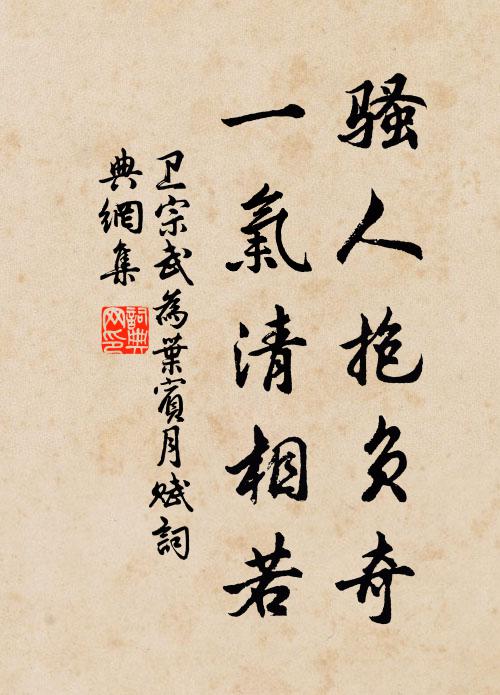 骚人抱负奇
一氣清相若
卫宗武為葉賓月赋詞
典網集
詞典网印